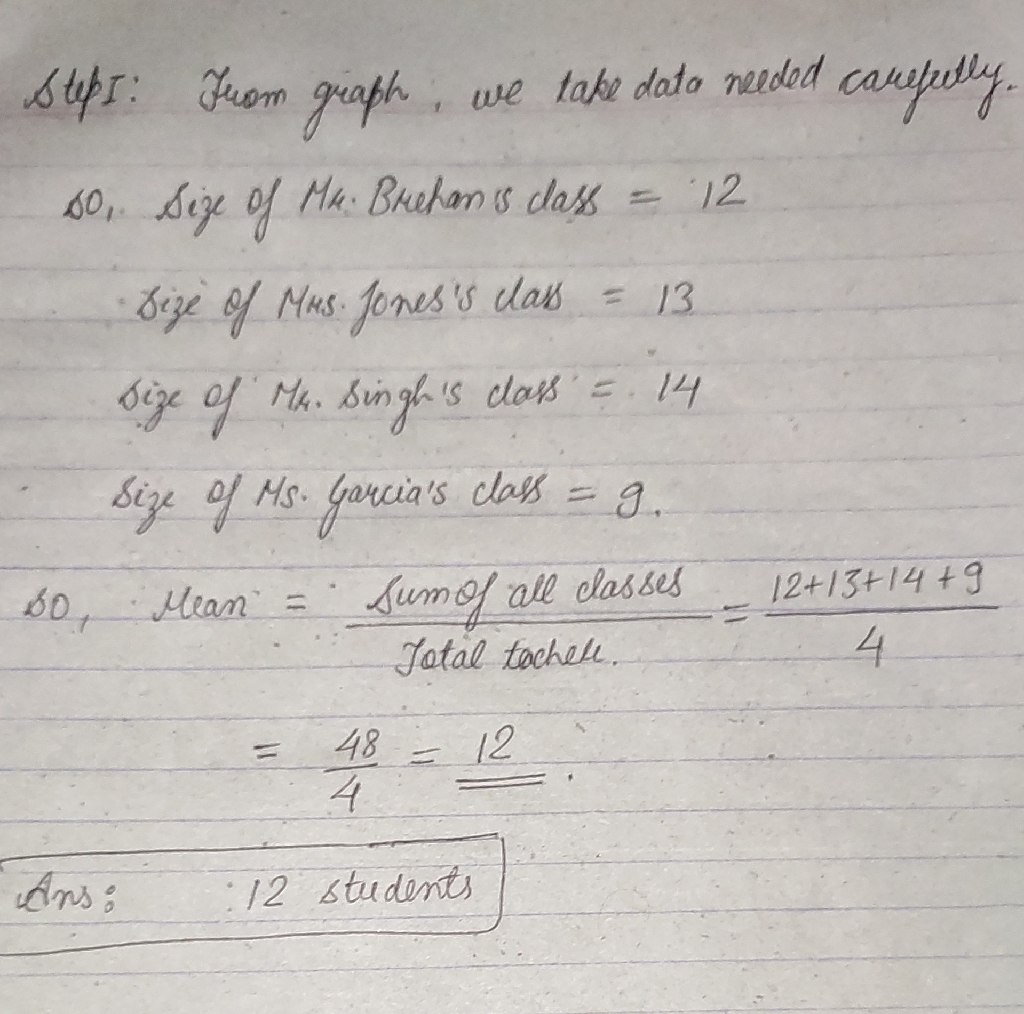 Step I: From graph, we take data needed carefully.
so, Size of Mr. Brehan's class = 12
Size of Mrs. Jones's class = 13
Size of Mr. Singh's class = 14
Size of Ms. Garcia's class = 9.
so, Mean = Sum of all classes / Total = 12+13+14+9 / 4
= 48/4 = 12.
Ans: 12 students